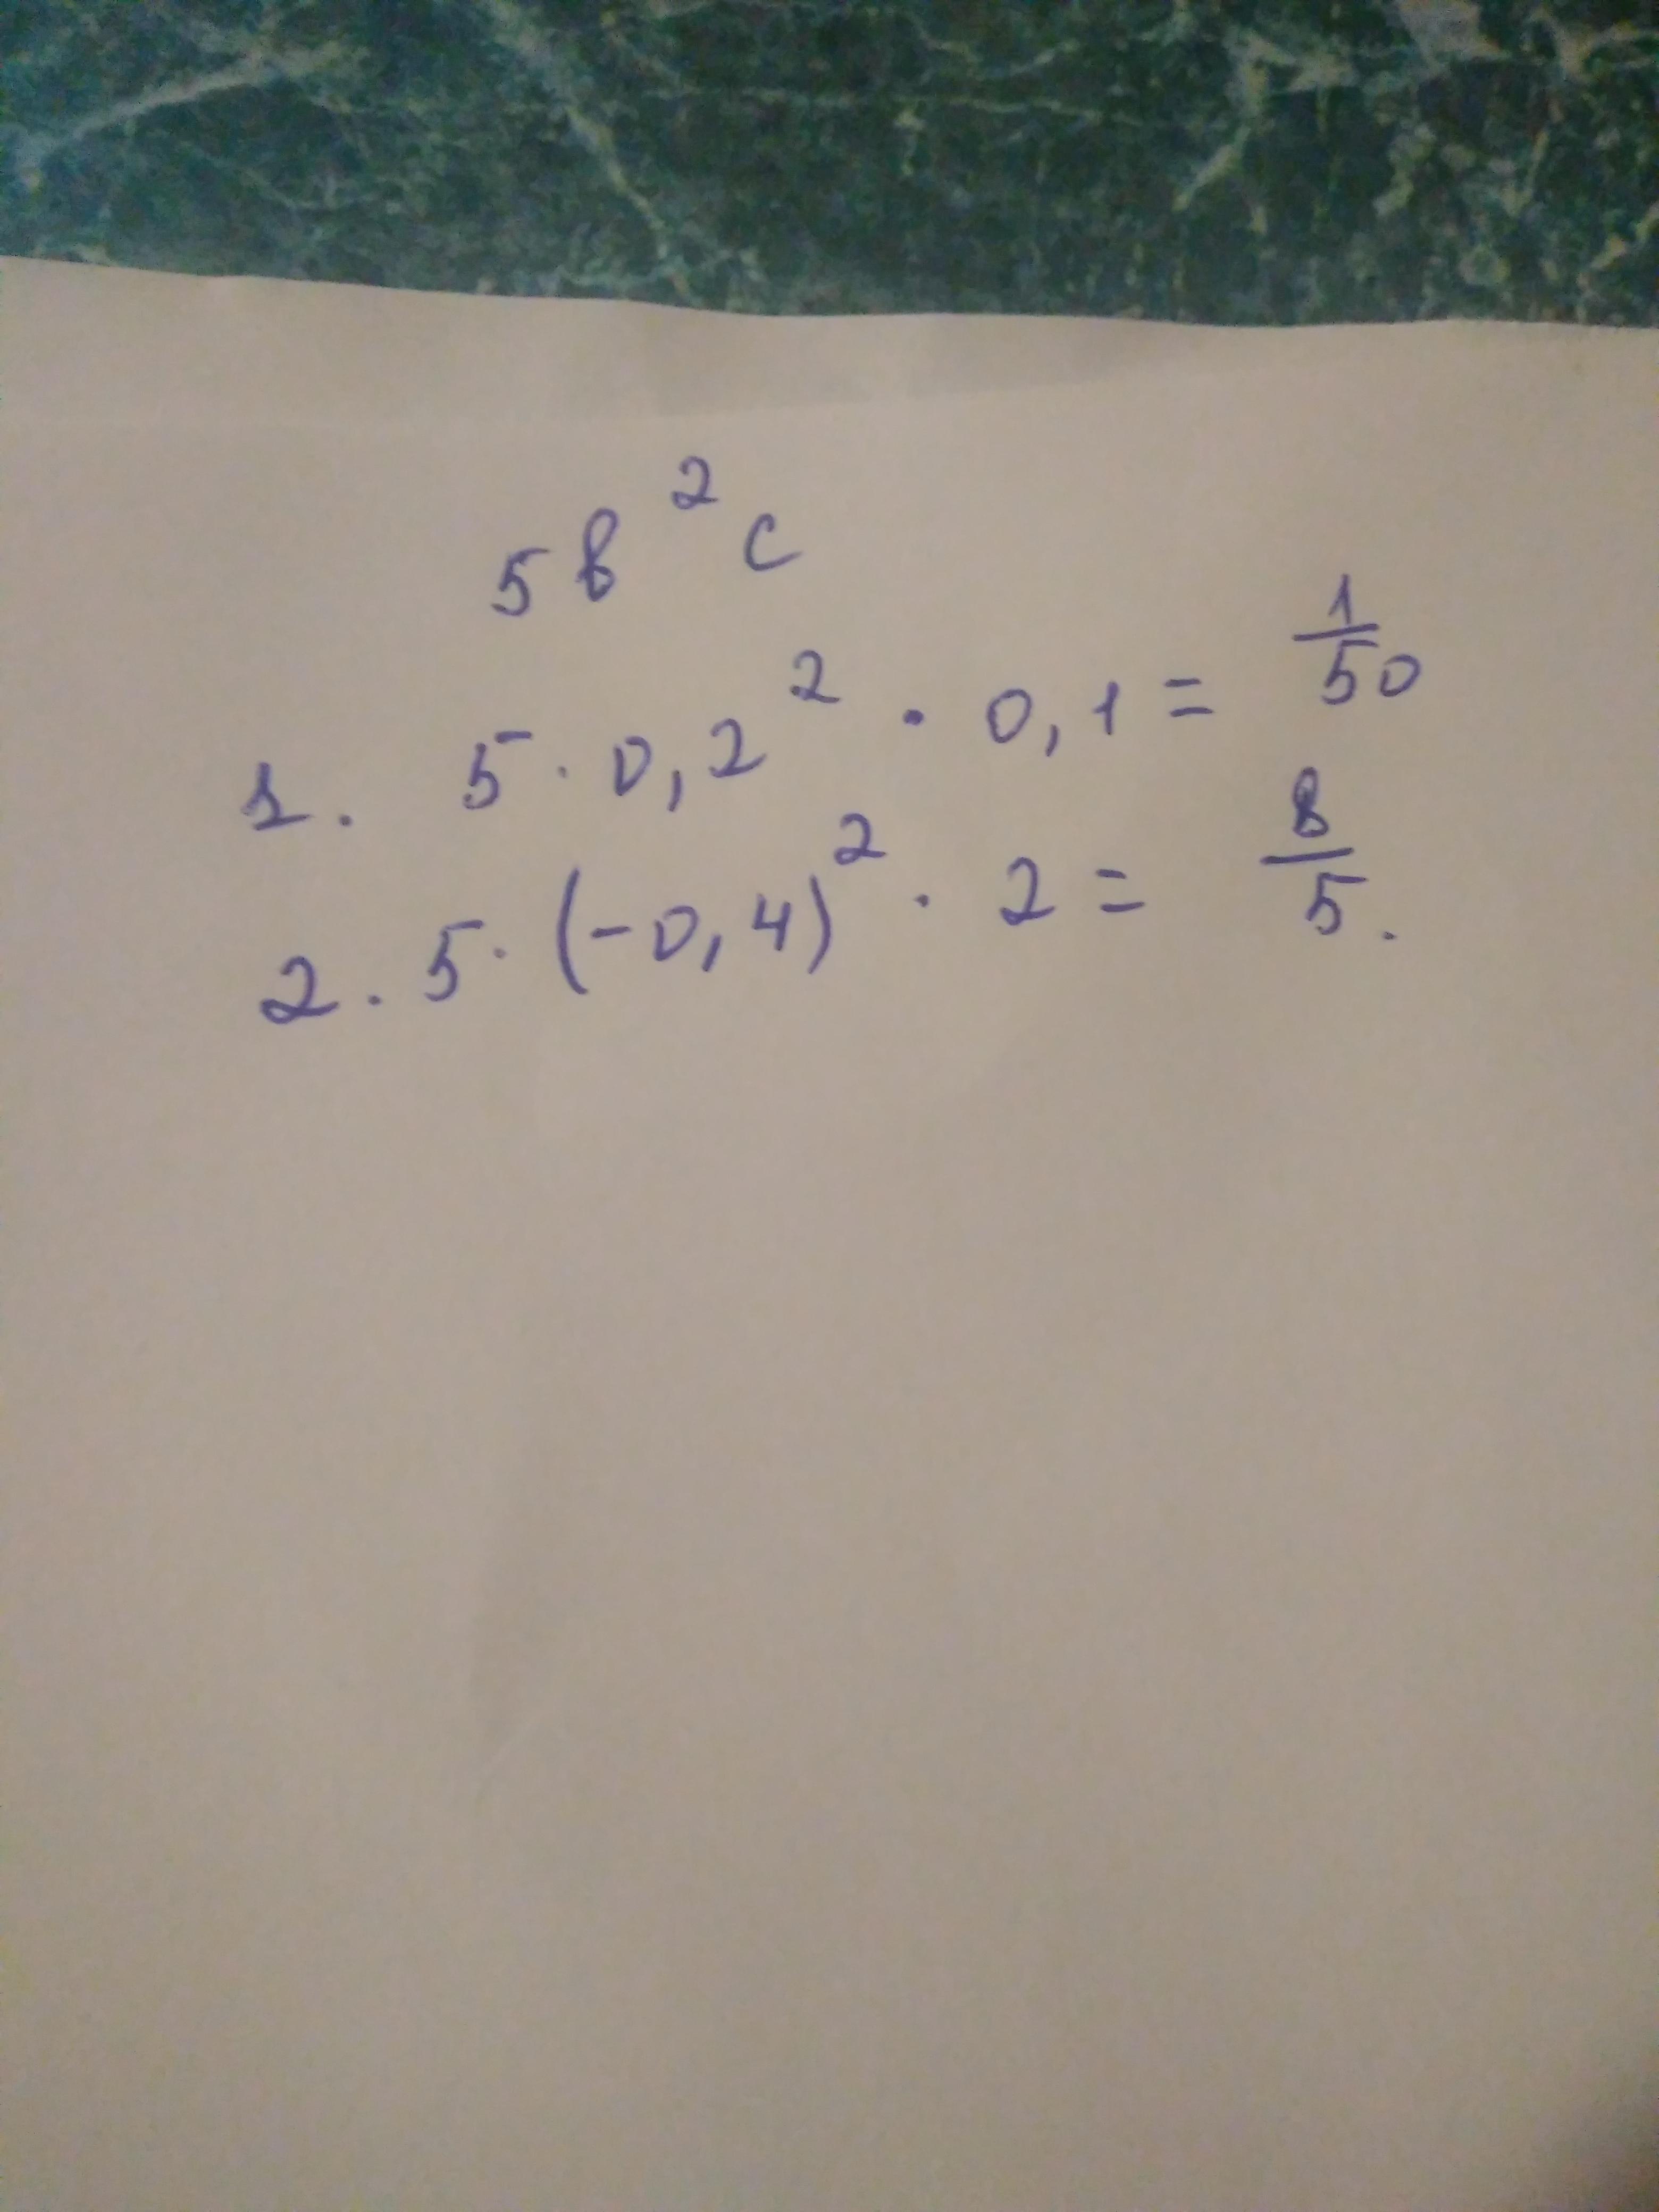 5в²c
1. 5·0,2² · 0,1 = 1/50
2. 5·(-0,4)² · 2 = 8/5.